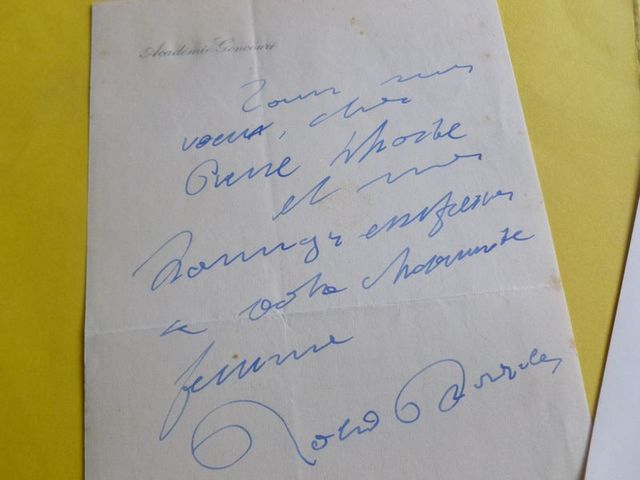 Académie Goncourt
Tous mes
voeux, cher
Pierre
et mes
hommages
à votre charmante
femme
Roland Dorgelès